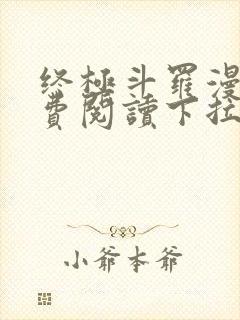 终極斗羅漫
費閱讀下拉
小爺本爺